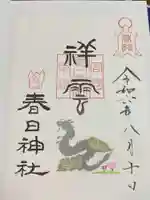 令和六年八月十日
祥雲
春日神社